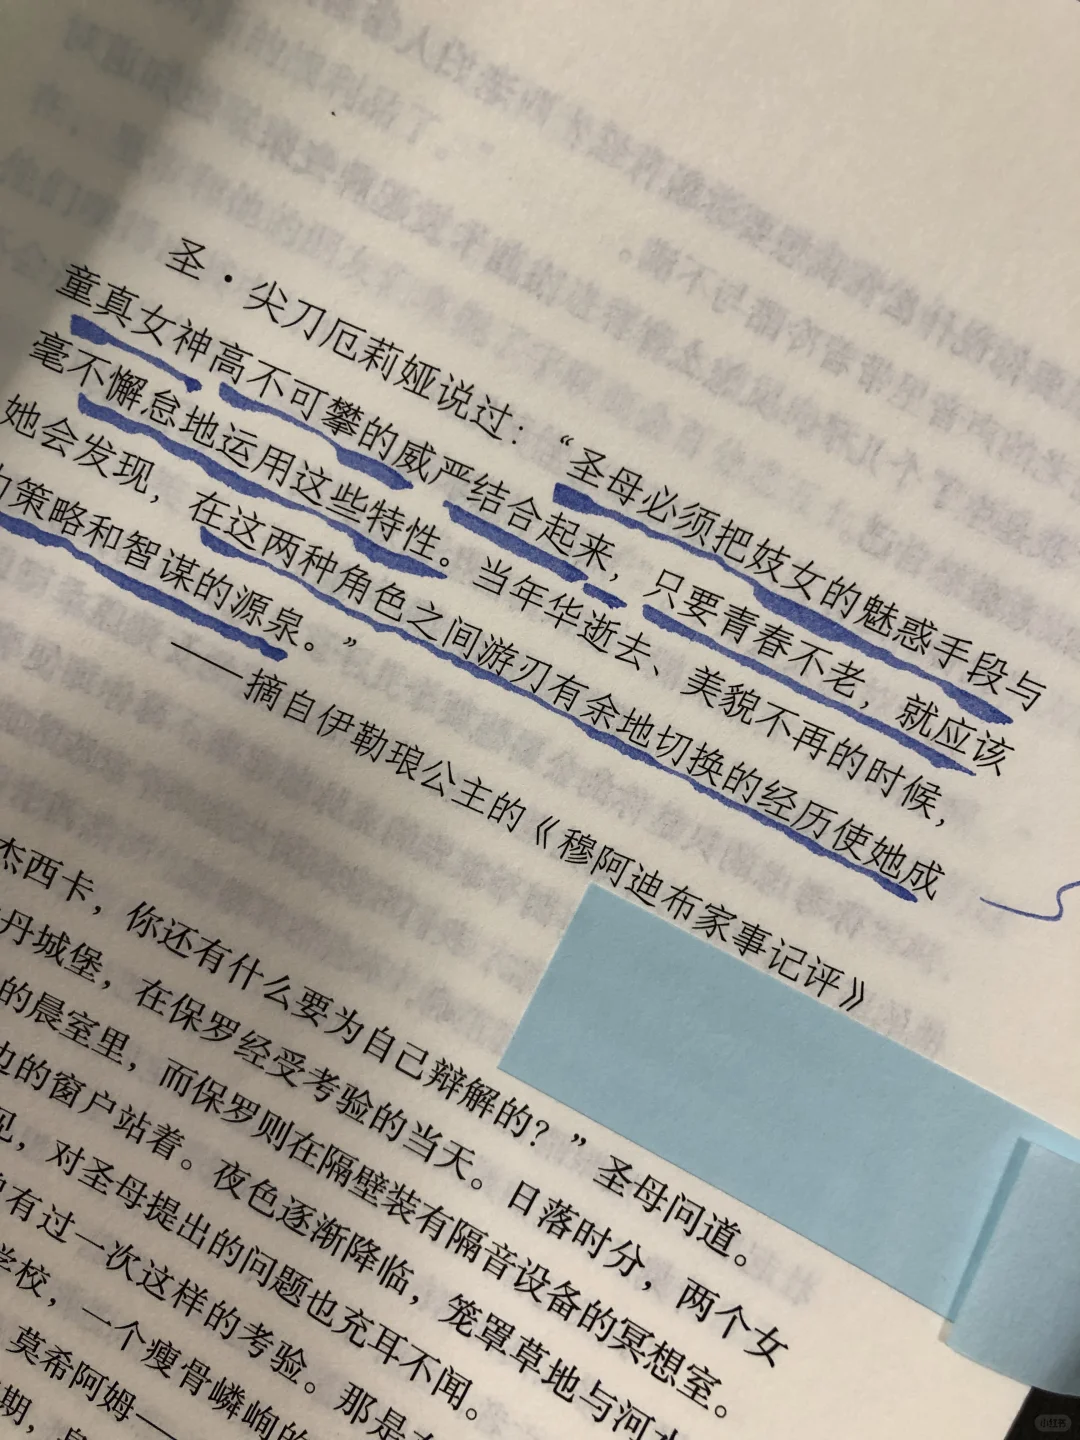 圣·尖刀厄莉娅说过：“圣母必须把妓女的魅惑手段与
童真女神高不可攀的威严结合起来，只要青春不老，就应该
毫不懈怠地运用这些特性。当年华逝去、美貌不再的时候，
她会发现，在这两种角色之间游刃有余地切换的经历使她成
策略和智谋的源泉。”
——摘自伊勒琅公主的《穆阿迪布家事记评》
杰西卡，你还有什么要为自己辩解的？”圣母问道。
丹城堡，在保罗经受考验的当天。日落时分，两个女
的晨室里，而保罗则在隔壁装有隔音设备的冥想室。
边的窗户站着。夜色逐渐降临，笼罩草地与河
见，对圣母提出的问题也充耳不闻。
有过一次这样的考验。那是
学校，一个瘦骨嶙峋的
莫希阿姆——
期，
小红书